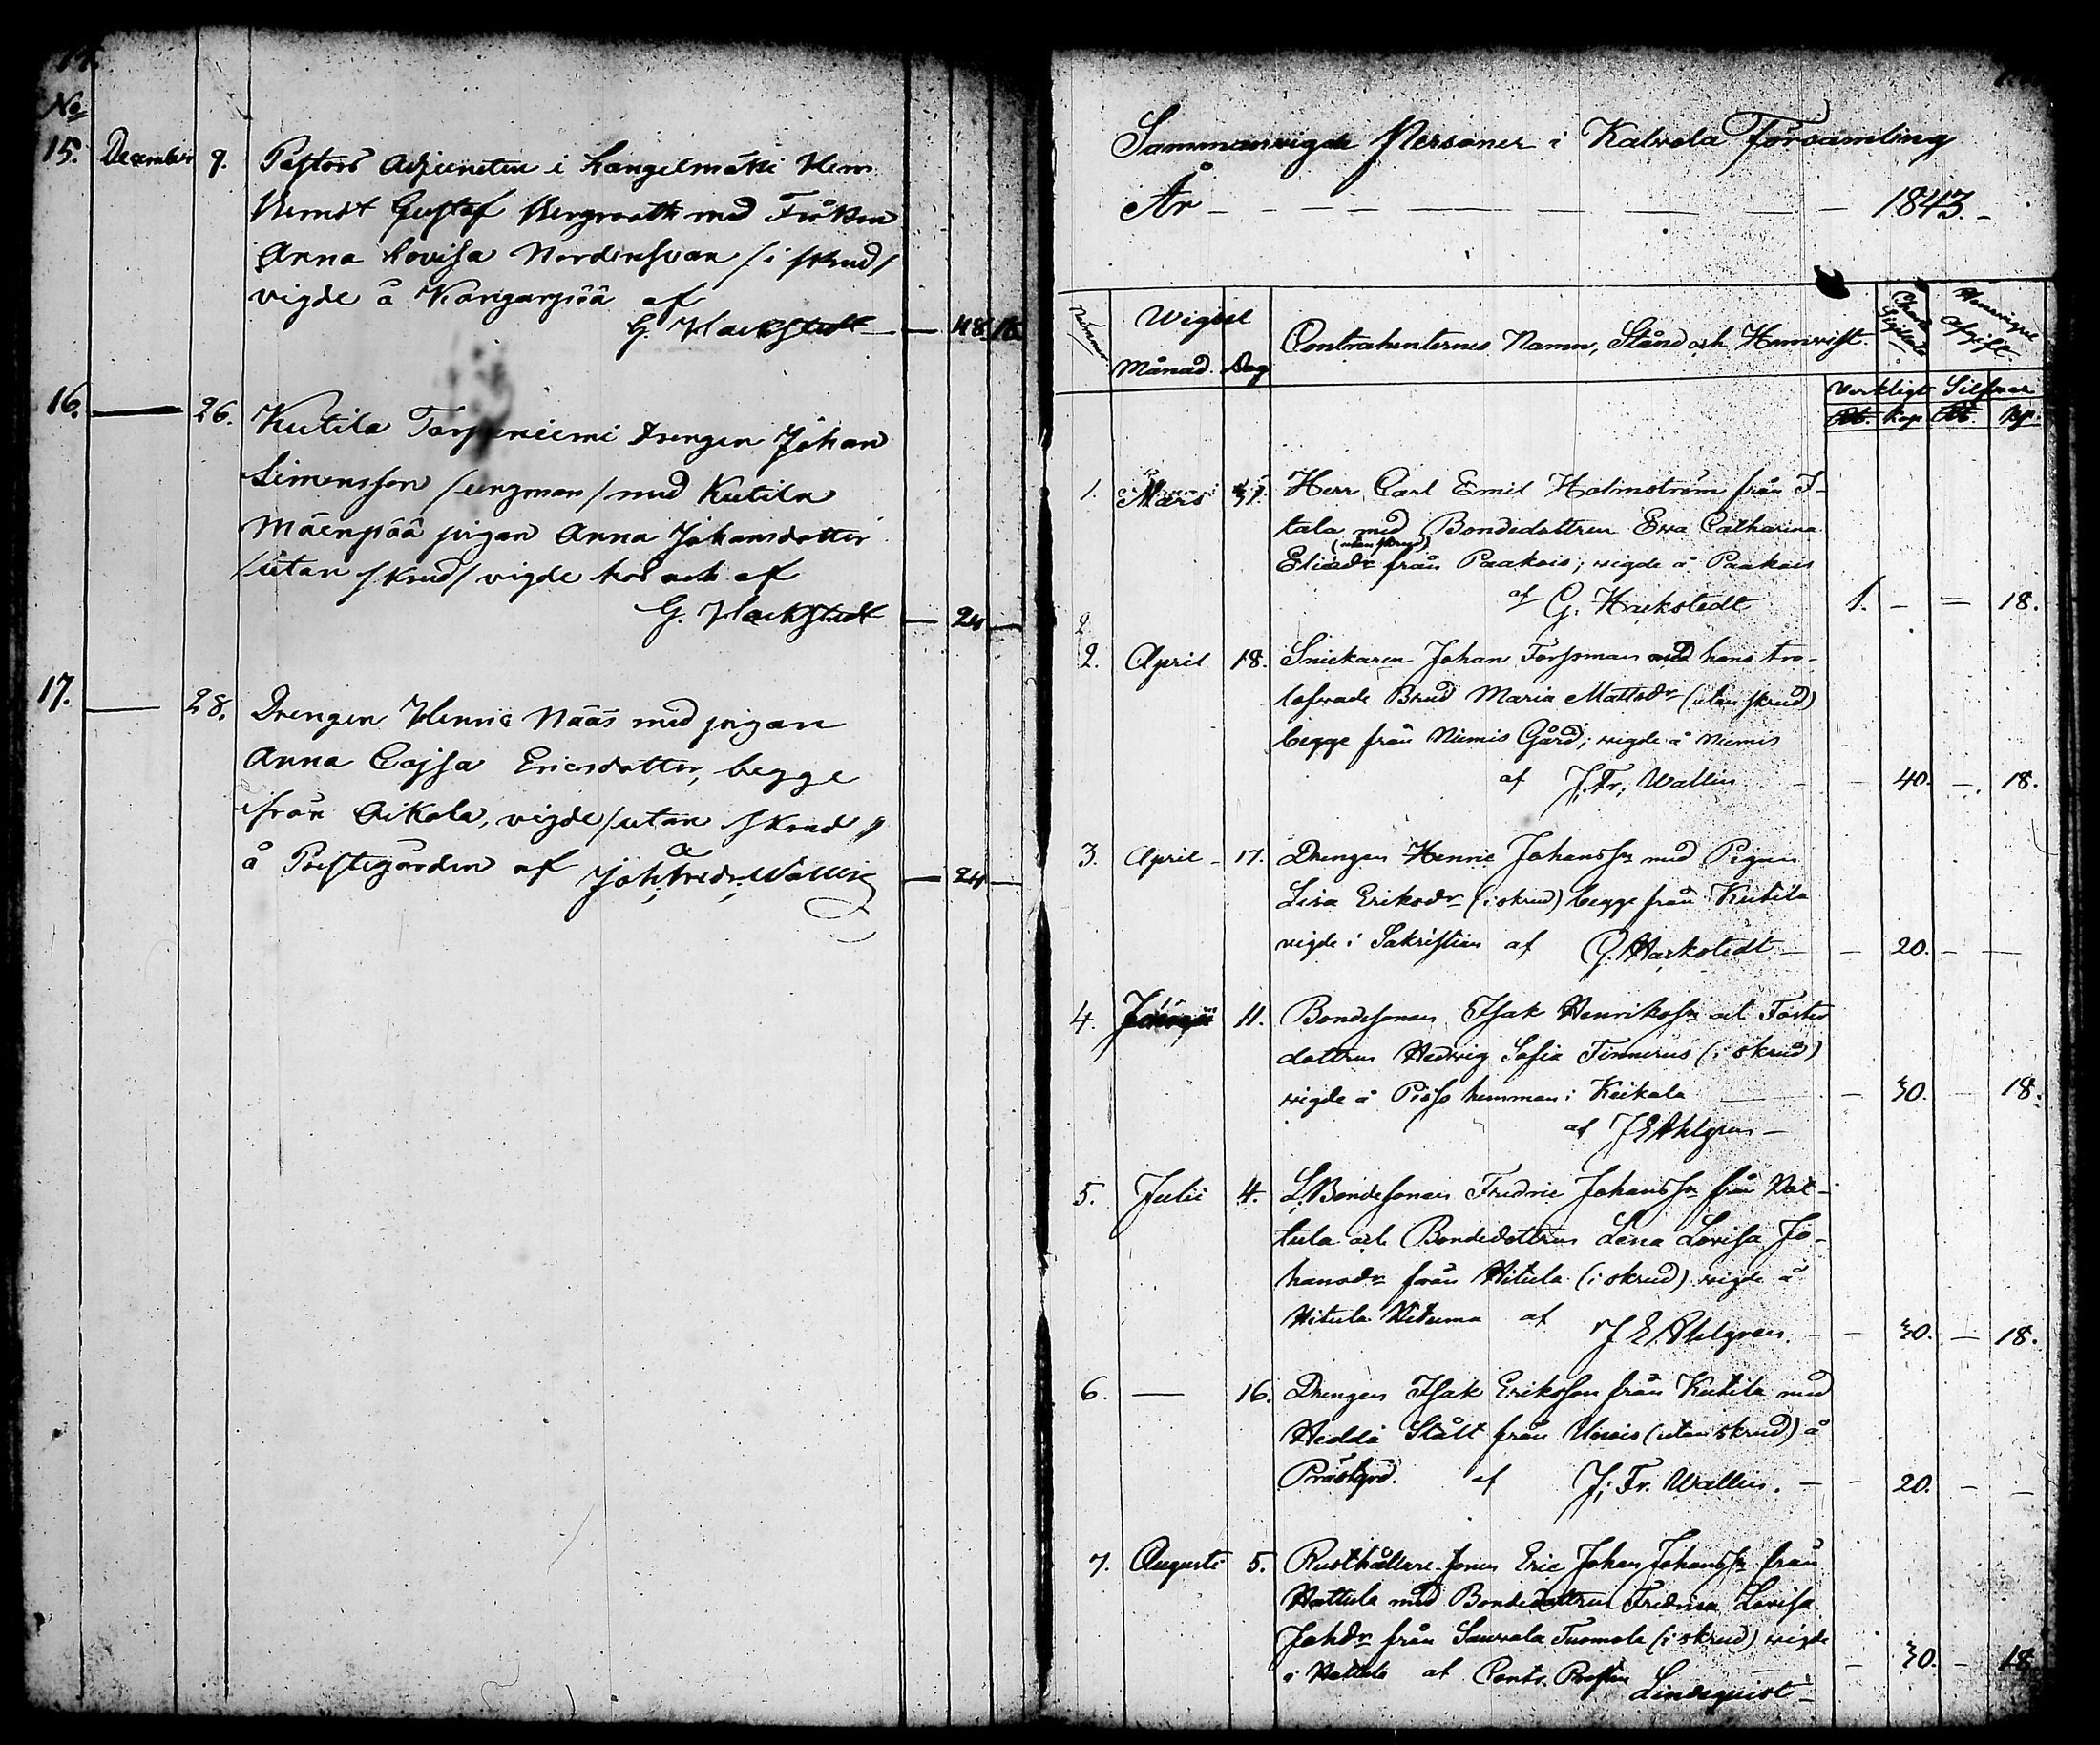 No
15. December 9. Pastors Adjuncten i Längelmäki Herr
Berndt Gustaf Bergroth med Fröken
Anna Lovisa Nordensvan /i skrud/
vigde å Kangarpää af
G. Hackstedt — 48. 18.
16. — 26. Kutila Torpaniemi Drengen Johan
Simonsson /ungman/ med Kutila
Mäenpää pigan Anna Johansdotter
/utan skrud/ vigde hos och af
G. Hackstedt — 24 —
17. — 28. Drengen Henric Nääs med pigan
Anna Cajsa Ericsdotter, begge
ifrån Aikala, vigde /utan skrud/
å Prestegården af Joh: Fredr: Wallin — 24 —
Sammanvigde Personer i Kalvola Församling
År — 1843.
Nummer Wigsel Contrahenternes Namn, Stånd och Hemvist. Charta Sigillata afgift.
Månad. Dag
Verkligt Silfver
Rb. Kop Rb. Kp.
1. Mars 31. Herr Carl Emil Holmström från I-
tala med Bondedottren Eva Catharina
(utan skrud)
Eliædr från Paakois; vigde å Paakois
af G. Hackstedt 1. — = 18.
2
2. April 18. Snickaren Johan Forssman med hans tro-
lofvade Brud Maria Mattsdr (utan skrud)
begge från Niemis Gård; vigde å Niemis
af J. Fr. Wallin — 40. — 18.
3. April 17. Drengen Henric Johanssn med Pigan
Lisa Eriksdr (i skrud) begge från Kutila
vigde i Sakristian af G. Hackstedt — 20. — —
4. 11. Bondesonen Isak Henrikssn och Foster
dottren Hedvig Sofia Finnerus (i skrud)
vigde å hemman i Keikala — 30. — 18.
af J E Ahlgren —
5. Julii 4. L. Bondesonen Fredric Johanssn från Hat-
tula och Bondedottren Lena Lovisa Jo-
hansdr från Hitula (i skrud) vigde å
Hitula af J E Ahlgren. — 30. — 18.
6. — 16. Drengen Isak Eriksson från Kutila med
Hedda Stålt från Unois (utan skrud) å
Prästgrd. af J. Fr. Wallin. — 20. — —
7. Augusti 5. Rusthållare sonen Eric Johan Johanssn från
Hattula med Bondedottren Fredrica Lovisa
Johdr från Sauvala Tuomola (i skrud) vigde
i Hattula af Contr. Prosten — 30. — 18
Lindequist —